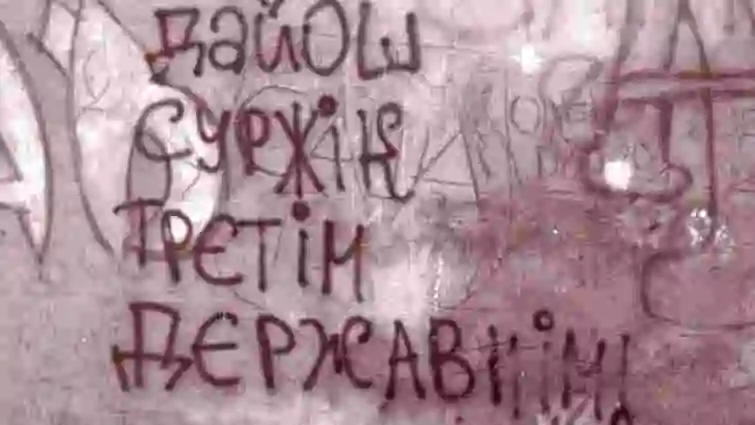 дайОш
СУРЖІК
ТРЄТІМ
ДЄРЖАВНІМ!